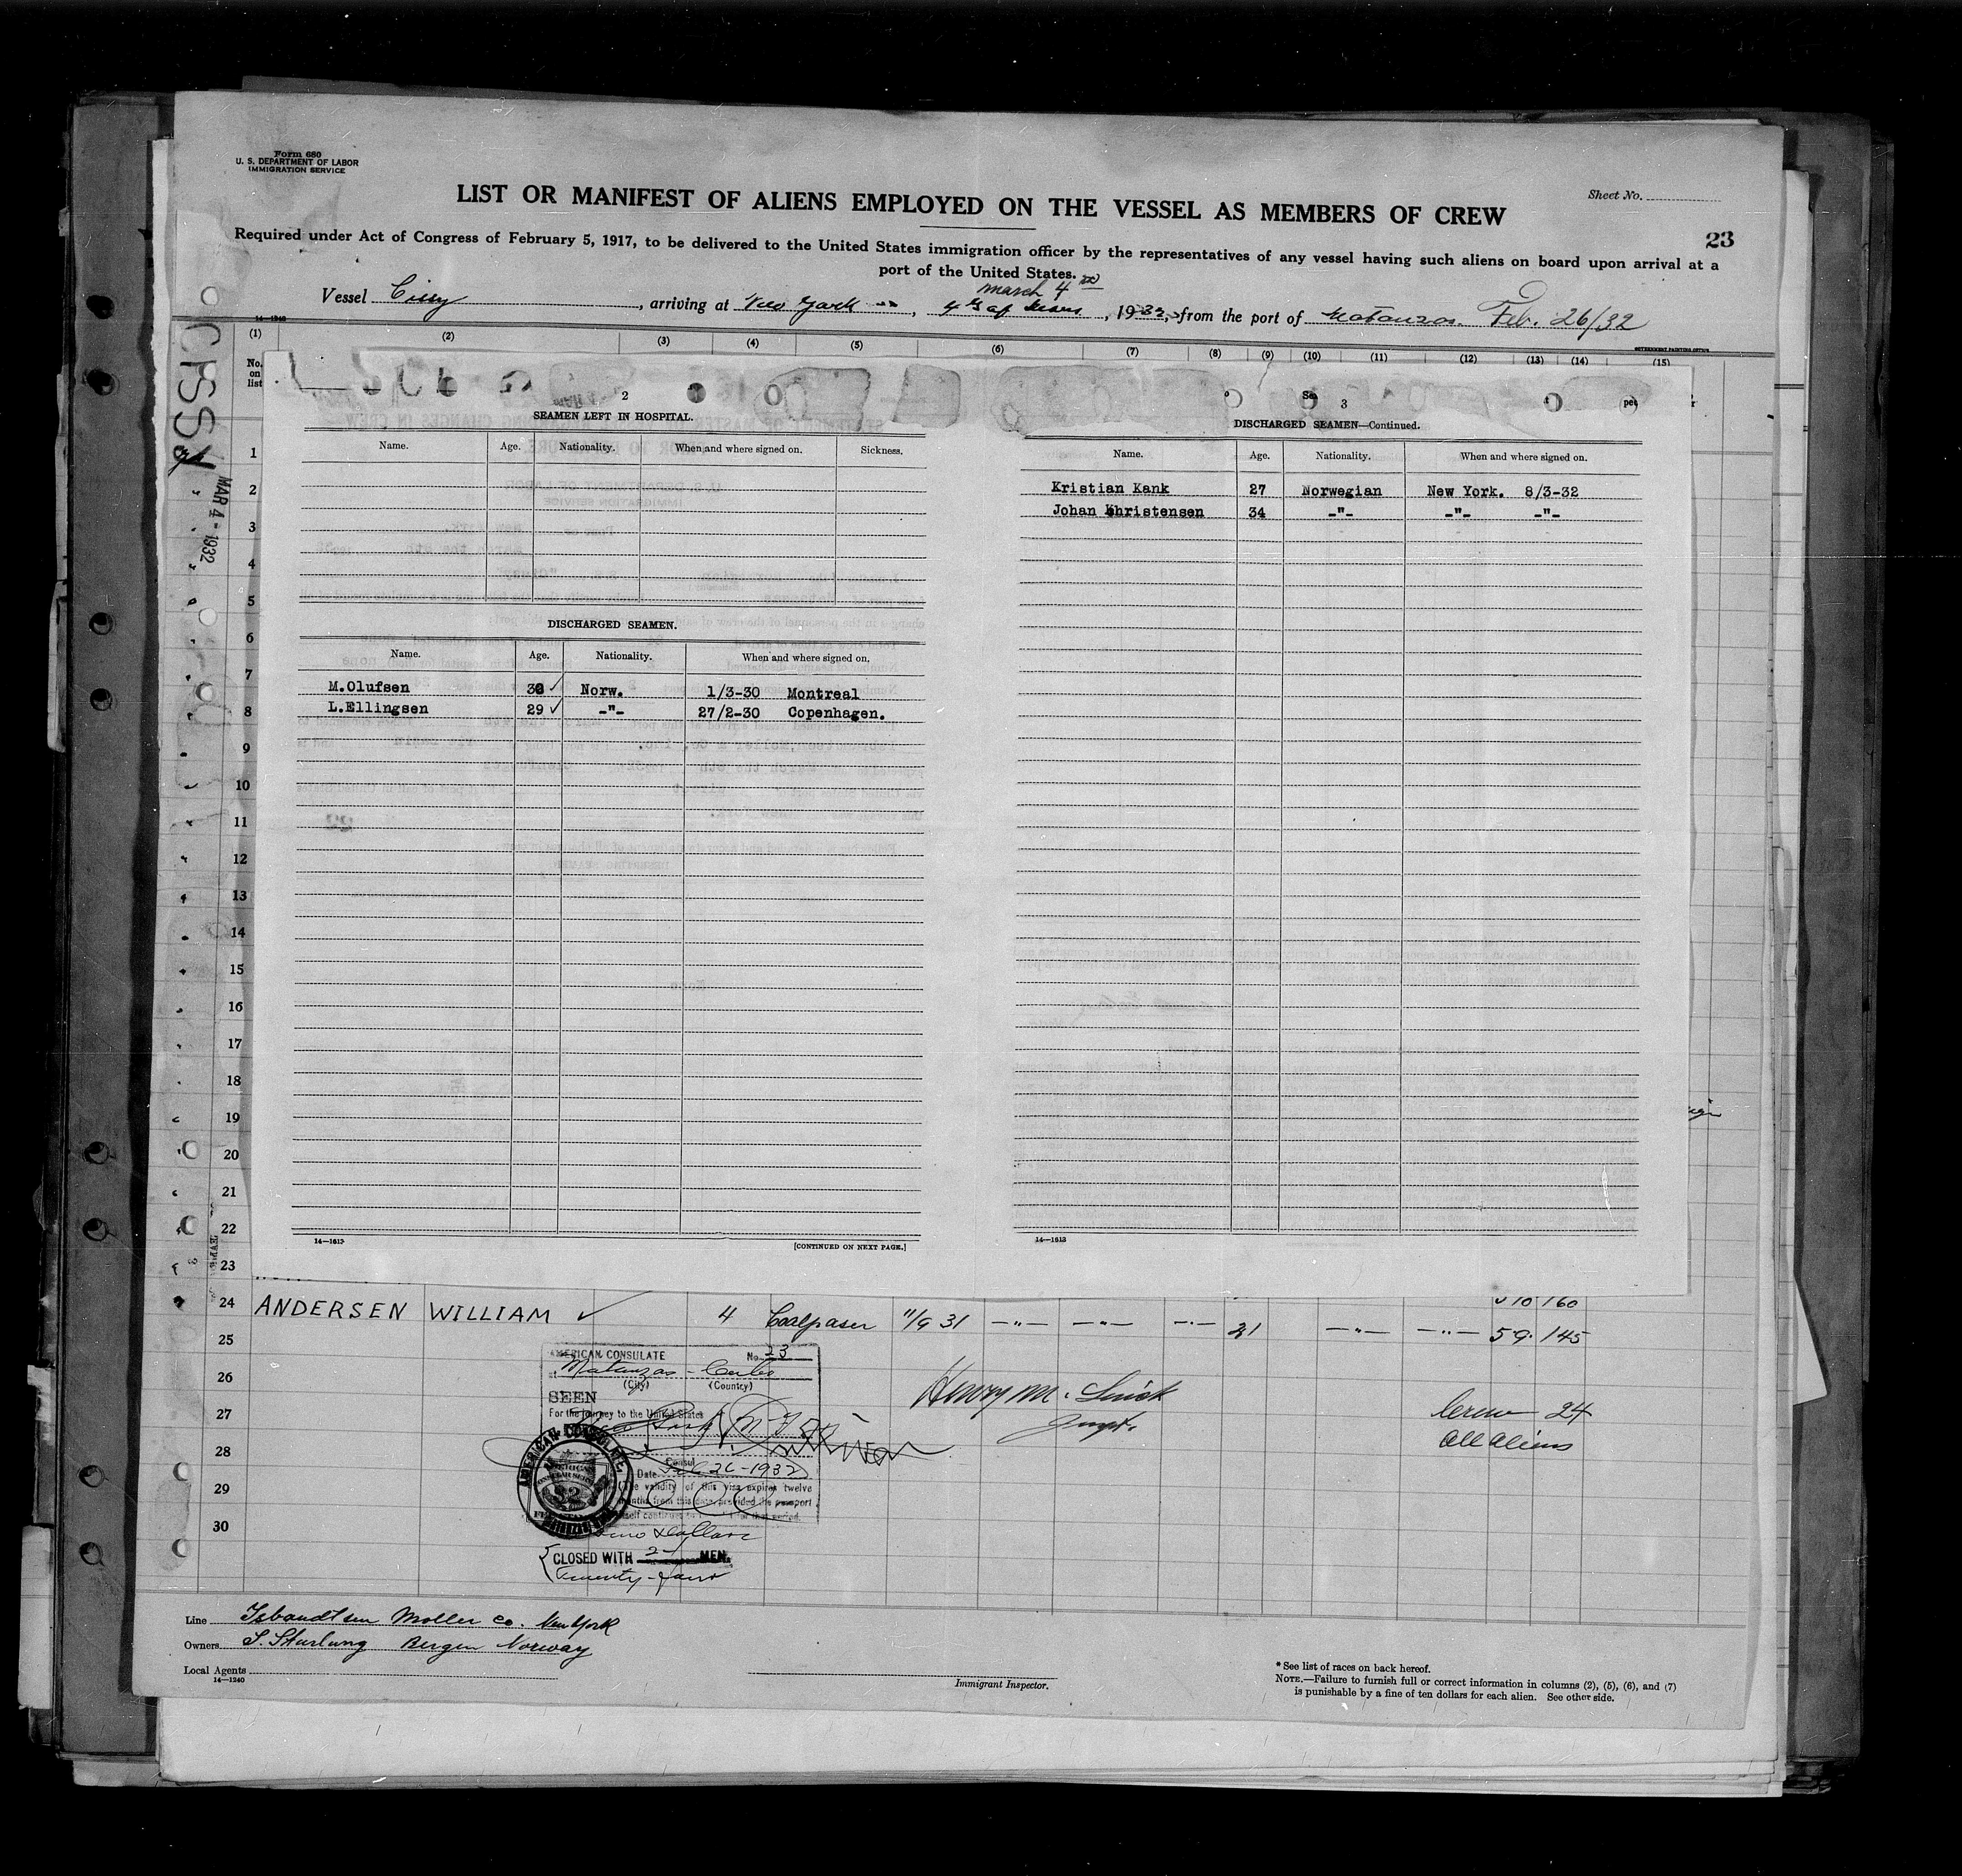 Form 680
U. S. DEPARTMENT OF LABOR
IMMIGRATION SERVICE
Sheet No.
LIST OR MANIFEST OF ALIENS EMPLOYED ON THE VESSEL AS MEMBERS OF CREW
23
Required under Act of Congress of February 5, 1917, to be delivered to the United States immigration officer by the representatives of any vessel having such aliens on board upon arrival at a
port of the United States.
March 4
Vessel Cissy, arriving at New York, 1932, from the port of Matanzas. Feb. 26/32
14—1240
GOVERNMENT PRINTING OFFICE
(1) (2) (3) (4) (5) (6) (7) (8) (9) (10) (11) (12) (13) (14) (15)
No. on list
CISSY
MAR 4 - 1932
2
SEAMEN LEFT IN HOSPITAL.
Name. Age. Nationality. When and where signed on. Sickness.
DISCHARGED SEAMEN.
Name. Age. Nationality. When and where signed on.
M.Olufsen 30 ✓ Norw. 1/3-30 Montreal
L.Ellingsen 29 ✓ -"- 27/2-30 Copenhagen.
14—1613
[CONTINUED ON NEXT PAGE.]
3
DISCHARGED SEAMEN—Continued.
Name. Age. Nationality. When and where signed on.
Kristian Kank 27 Norwegian New York. 8/3-32
Johan Khristensen 34 -"- -"- -"-
14—1613
1
2
3
4
5
6
7
8
9
10
11
12
13
14
15
16
17
18
19
20
21
22
23
24 ANDERSEN WILLIAM ✓ 4 Coalpaser 11/9 31 —"— —"— —"— 21 —"— —"— 5 9 145
25
26
27
28
29
30
AMERICAN CONSULATE No. 23
at Matanzas - Cuba
(City) (Country)
SEEN
For the journey to the United States
Consul
Date Feb 26-1932
The validity of this visa expires twelve
months from this date, provided the passport
itself continues to for that period.
AMERICAN CONSULATE.
Two Dollars
CLOSED WITH 24 MEN.
Twenty-four
Henry M.
Inspt.
Crew 24
All aliens
Line Isbrandtsen Moller Co. New York
Owners Bergen Norway
Local Agents
14—1240
Immigrant Inspector.
* See list of races on back hereof.
NOTE.—Failure to furnish full or correct information in columns (2), (5), (6), and (7)
is punishable by a fine of ten dollars for each alien. See other side.